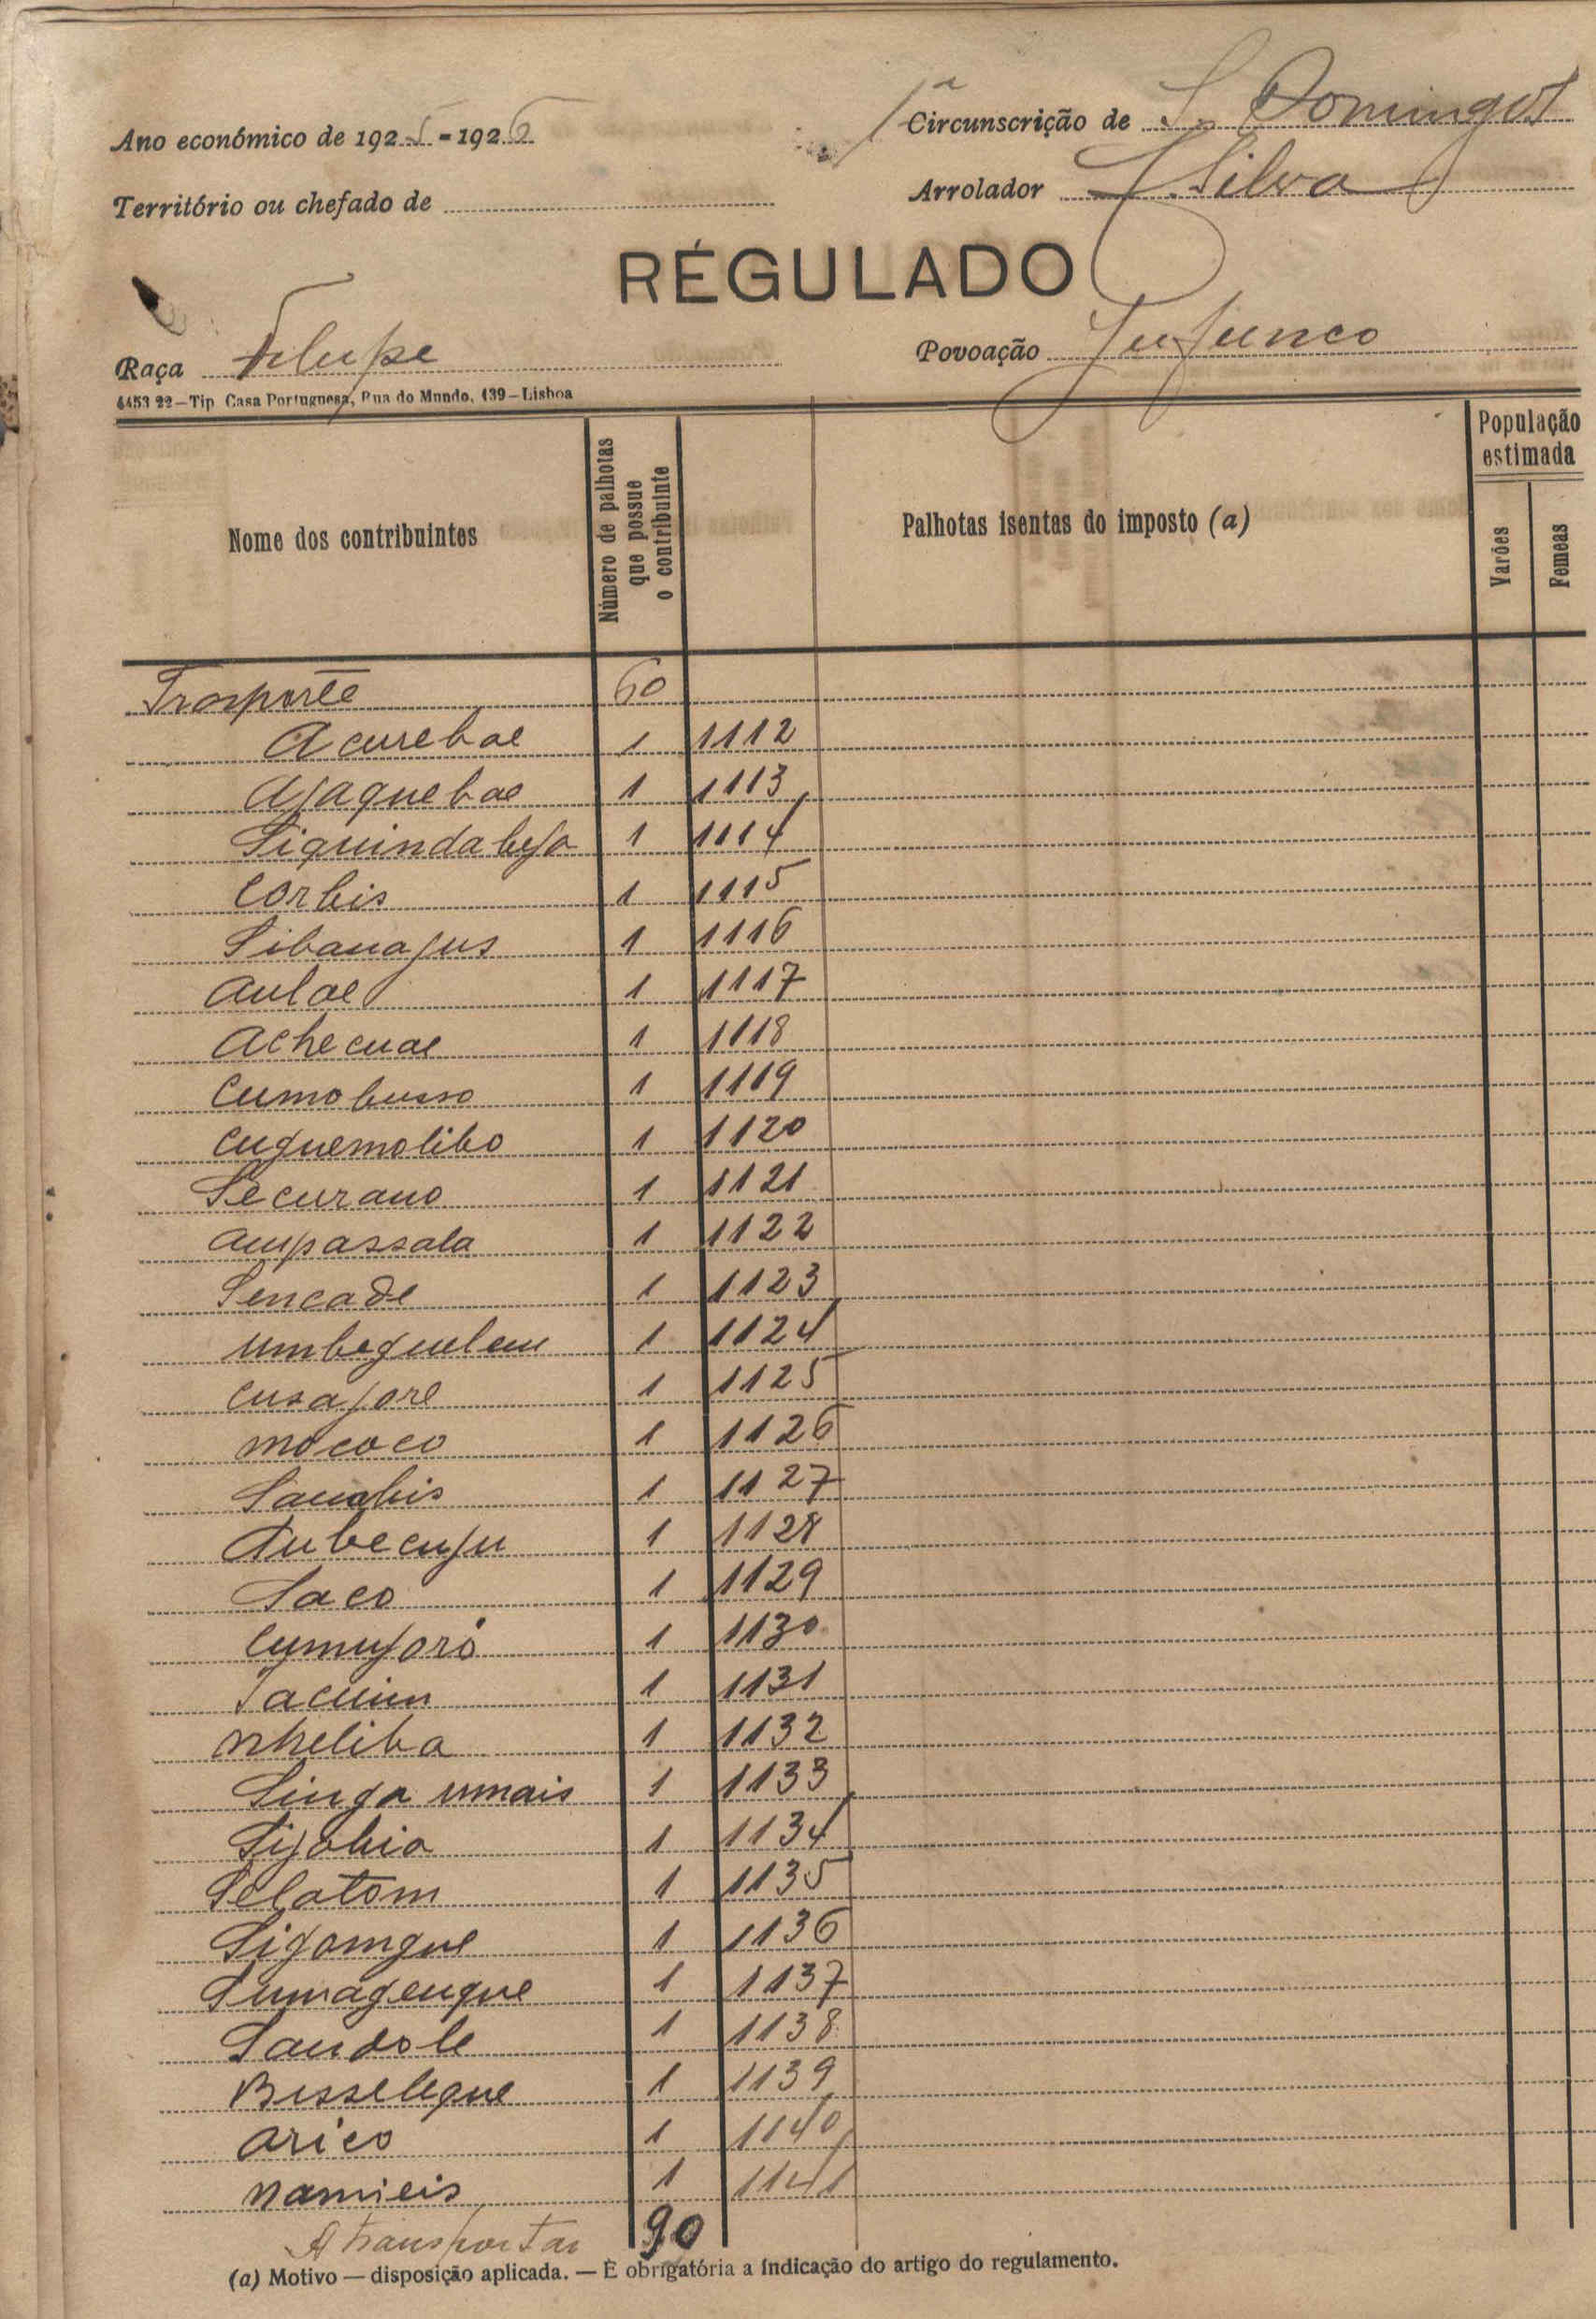 Ano económico de 1925-1926
1ª Circunscrição de S. Domingos
Território ou chefado de
Arrolador Silva
RÉGULADO
Raça Felupe
Povoação Jufunco
4453 22—Tip Casa Portuguesa, Rua do Mundo, 139—Lisboa
Nome dos contribuintes
Número de palhotas que possue o contribuinte
Palhotas isentas do imposto (a)
População estimada
Varões
Femeas
Trasporte 60
Acurebae 1 1112
Ajaquebae 1 1113
Siquindabejo 1 1114
Corbis 1 1115
Sibanajus 1 1116
Aulae 1 1117
Achecuae 1 1118
Cumobusso 1 1119
Cuguemolibo 1 1120
Securano 1 1121
Ampassala 1 1122
Sencade 1 1123
Umbeguleu 1 1124
Cusajore 1 1125
Mococo 1 1126
Sanobis 1 1127
Aubecuju 1 1128
Saco 1 1129
Cumujoró 1 1130
Jacuim 1 1131
Nheliba 1 1132
Singa umais 1 1133
Sijobia 1 1134
Selatom 1 1135
Sigomgue 1 1136
Sumagenque 1 1137
Sandole 1 1138
Bisseleque 1 1139
Arico 1 1140
Namieis 1 1141
A transportar 90
(a) Motivo — disposição aplicada. — É obrigatória a indicação do artigo do regulamento.